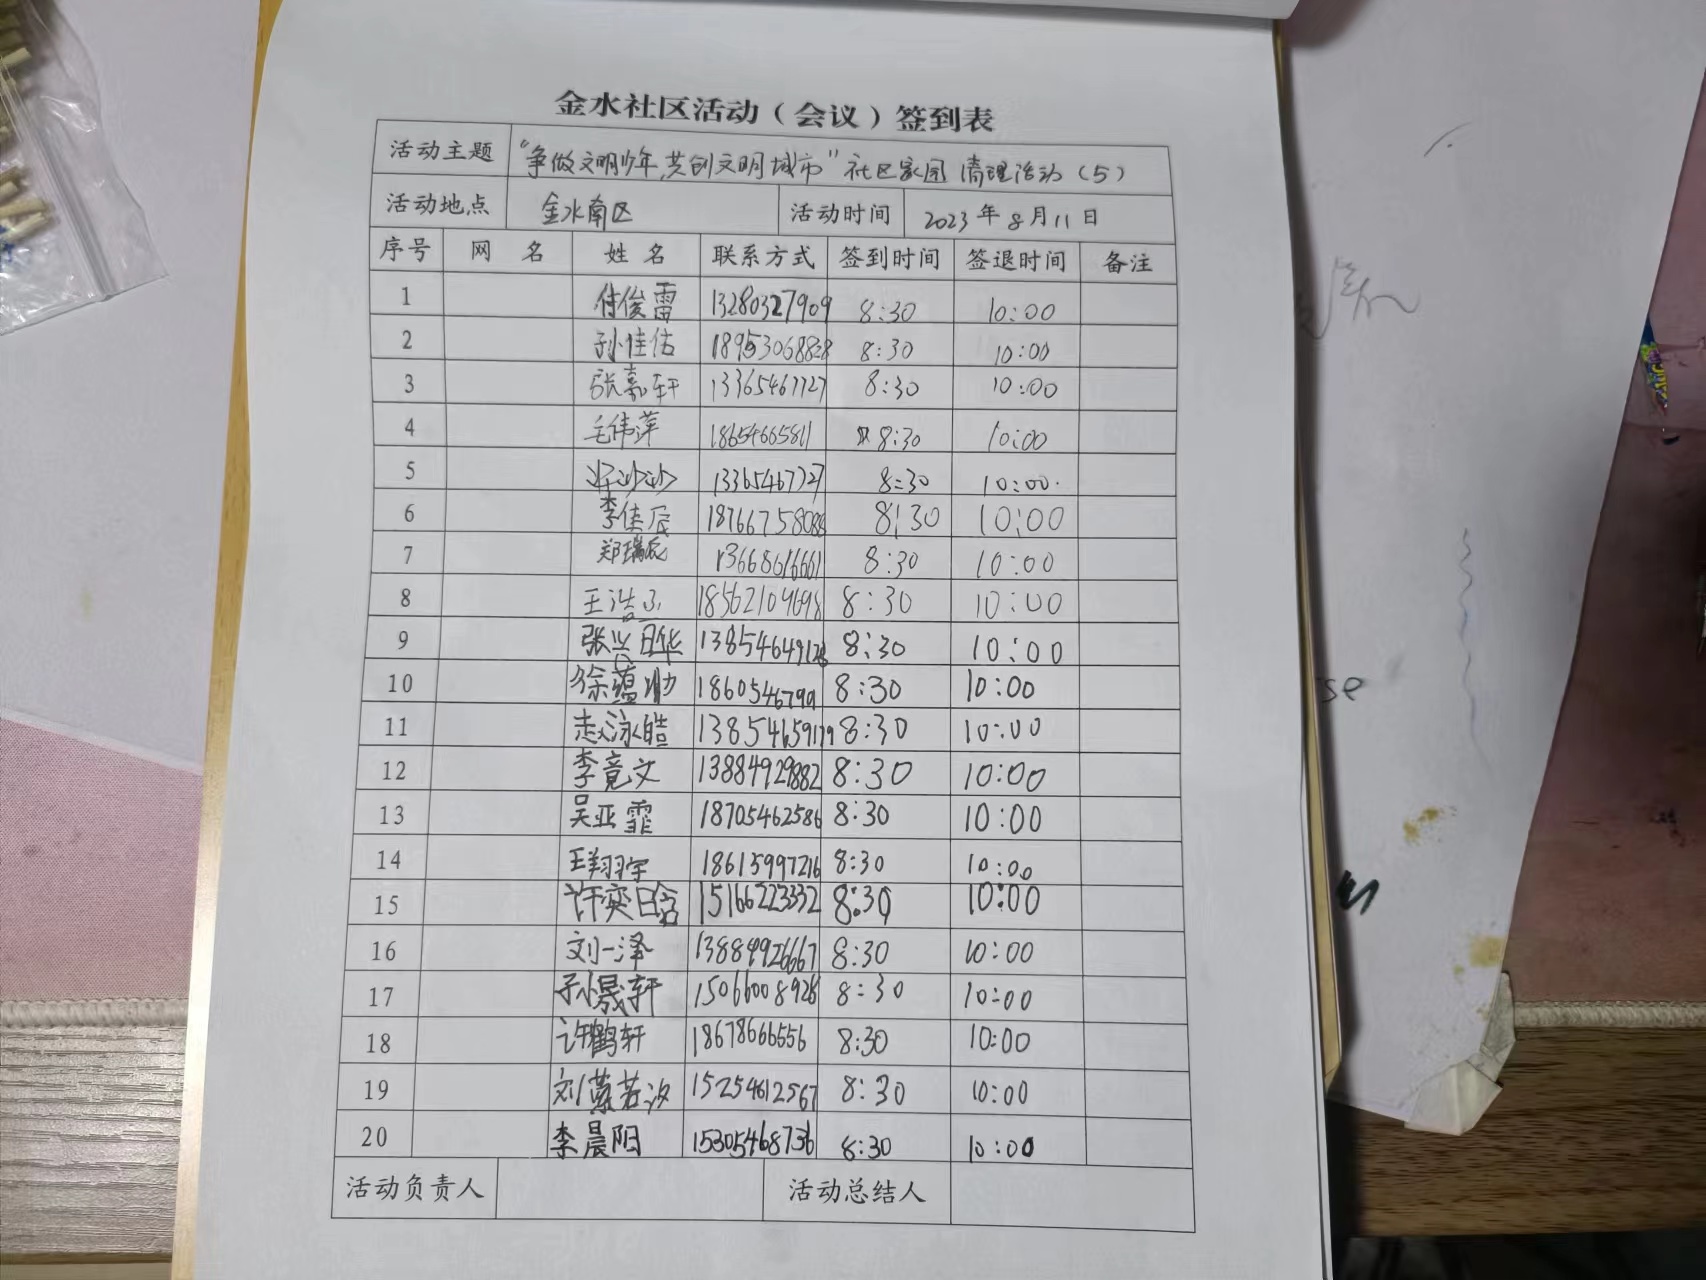 金水社区活动（会议）签到表
活动主题 "争做文明少年,共创文明城市"社区家园清理活动（5）
活动地点 金水南区 活动时间 2023年8月11日
序号 网 名 姓 名 联系方式 签到时间 签退时间 备注
1 付俊雷 13280327909 8:30 10:00
2 孙佳佑 18953068828 8:30 10:00
3 张嘉轩 13365461727 8:30 10:00
4 毛伟萍 18654665811 8:30 10:00
5 13365467727 8:30 10:00
6 李佳辰 18766758088 8:30 10:00
7 郑瑞辰 13668616661 8:30 10:00
8 18562109698 8:30 10:00
9 张兴晔 13854649128 8:30 10:00
10 8:30 10:00
11 赵泳皓 13854659179 8:30 10:00
12 李竟文 13884929882 8:30 10:00
13 吴亚霏 18705462586 8:30 10:00
14 王翔宇 18615997216 8:30 10:00
15 许奕晗 15166223332 8:30 10:00
16 刘一泽 13884926667 8:30 10:00
17 孙晟轩 15066008928 8:30 10:00
18 许鹤轩 18678666556 8:30 10:00
19 15254612567 8:30 10:00
20 李晨阳 15305468736 8:30 10:00
活动负责人 活动总结人
se